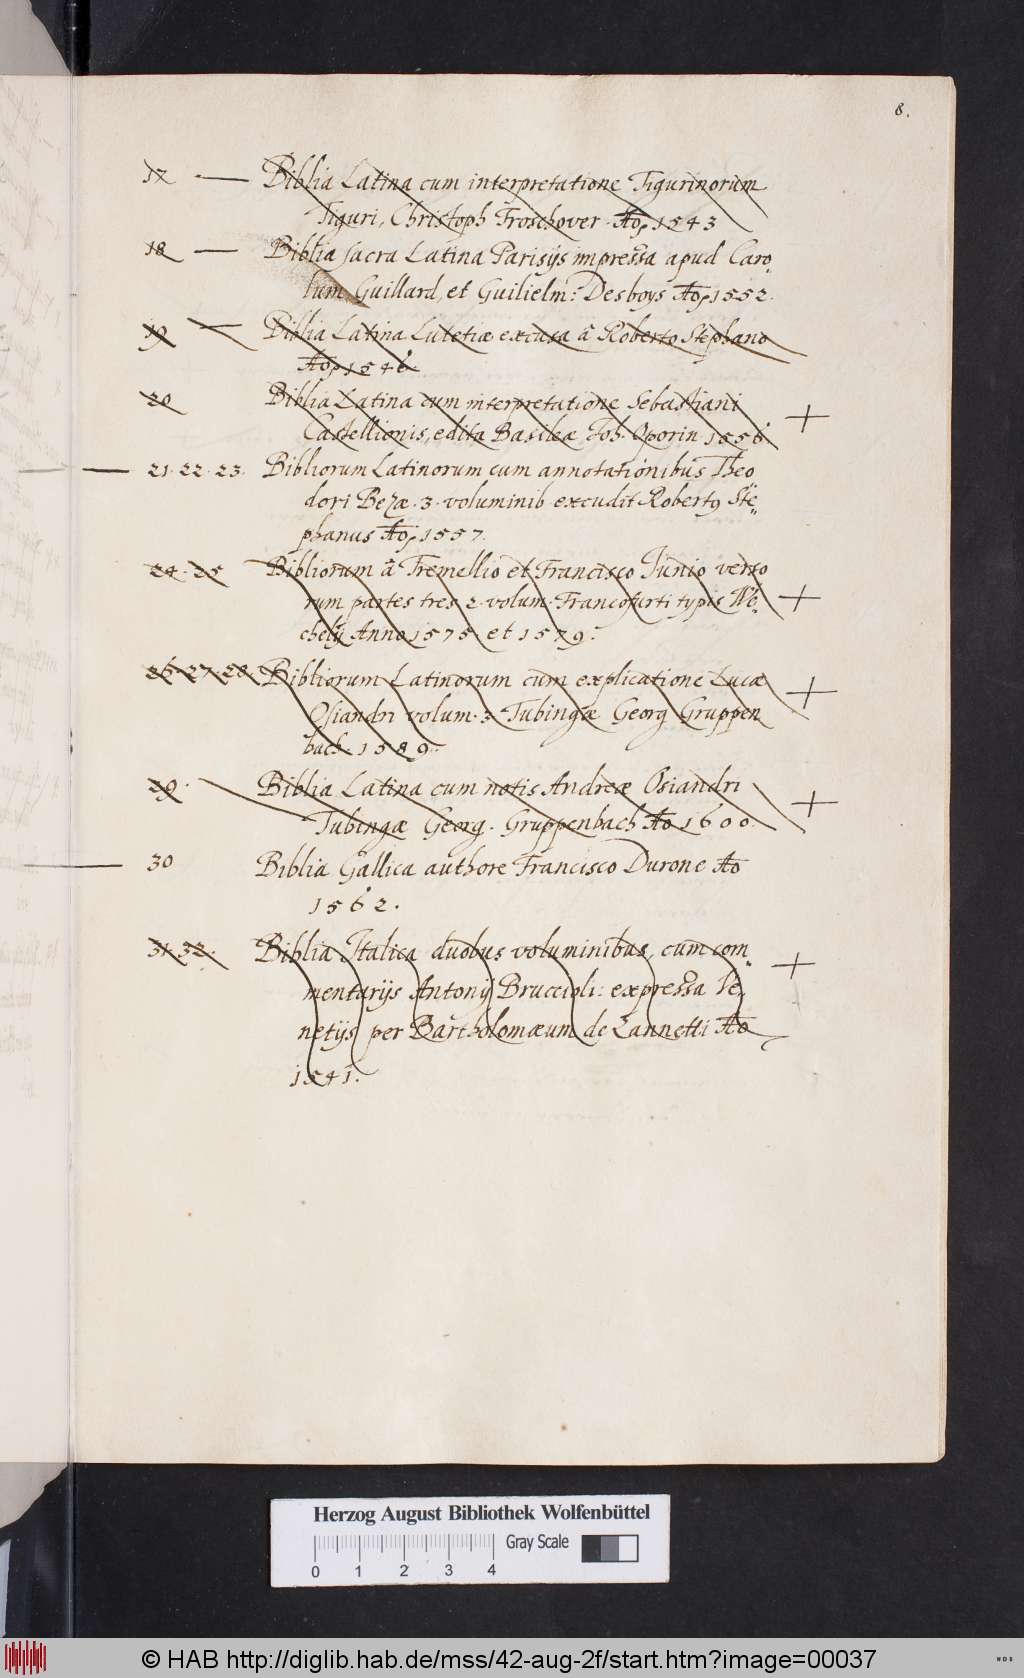 8.
17 — Biblia Latina cum interpretatione Tigurinorum
Tiguri, Christoph Froschover Ao, 1543
18 — Biblia sacra Latina Parisijs impressa apud Caro,
lum Guillard, et Guilielm: Desboys Ao, 1552.
19 — Biblia Latina Lutetiæ excusa â Roberto Stephano
Ao, 1546
20 Biblia Latina cum interpretatione Sebastiani
Castellionis, edita Basileæ Joh. Oporin. 1556
— 21. 22. 23. Bibliorum Latinorum cum annotationibus Theo,,
dori Bezæ. 3. voluminib. excudit Robertq Ste,,
phanus Ao, 1557.
24. 25 Bibliorum â Tremellio et Francisco Junio verso
rum partes tres 2. volum. Francofurti typis We,
chelij Anno 1575. et 1579.
26. 27. 28. Bibliorum Latinorum cum explicatione Lucæ
Osiandri volum. 3 Tubingæ Georg Gruppen
bach 1589.
29. Biblia Latina cum notis Andreæ Osiandri
Tubingæ Georg. Gruppenbach Ao 1600.
— 30 Biblia Gallica authore Francisco Durone Ao
1562.
31. 32. Biblia Italica duobus voluminibus, cum com,,
mentarijs Antonij Bruccioli: expressa Ve,,
netijs per Bartholomæum de Zannetti Ao
1541.
Herzog August Bibliothek Wolfenbüttel
Gray Scale
0 1 2 3 4
© HAB http://diglib.hab.de/mss/42-aug-2f/start.htm?image=00037